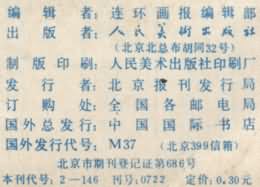 编辑者：连环画报编辑部
出版者：人民美术出版社
（北京北总布胡同32号）
制版印刷：人民美术出版社印刷厂
发行者：北京报刊发行局
订购处：全国各邮电局
国外总发行：中国国际书店
国外发行代号：M37（北京399信箱）
北京市期刊登记证第686号
本刊代号：2—146 刊号：0722 定价：0.30元